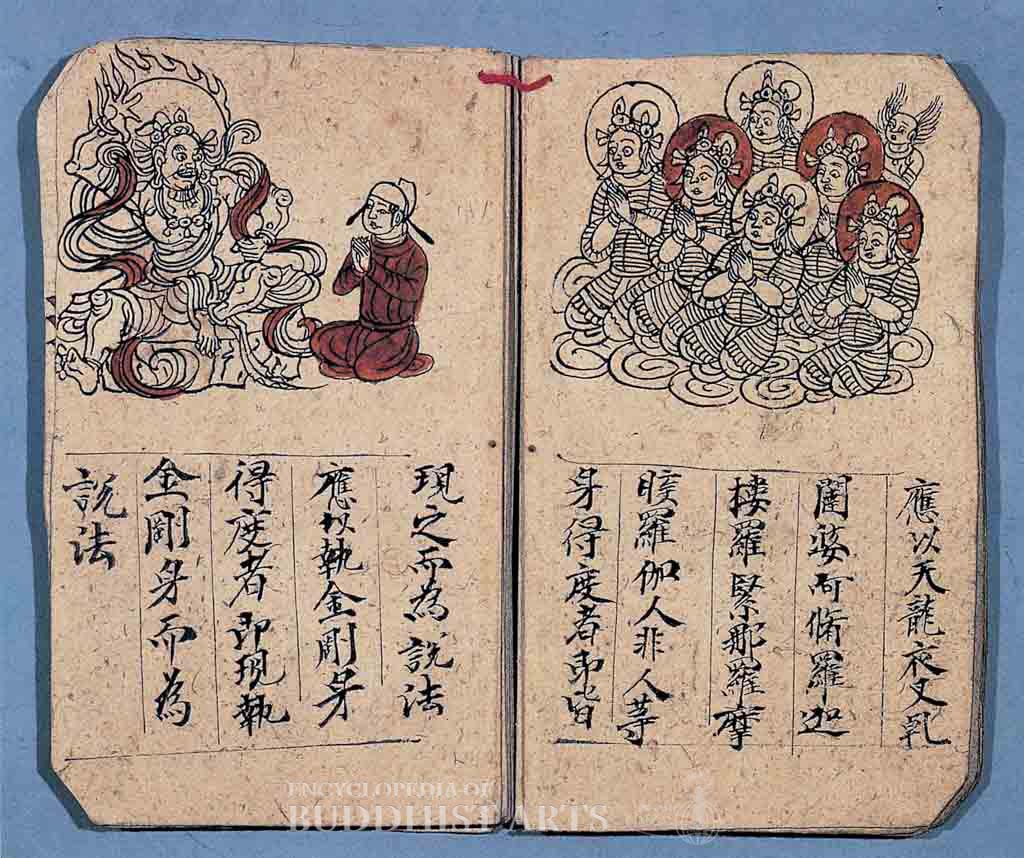 應以天龍夜叉乹
闥婆阿脩羅迦
樓羅緊那羅摩
睺羅伽人非人等
身得度者即皆
現之而為說法
應以執金剛身
得度者即現執
金剛身而為
說法
ENCYCLOPEDIA OF
BUDDHIST ARTS